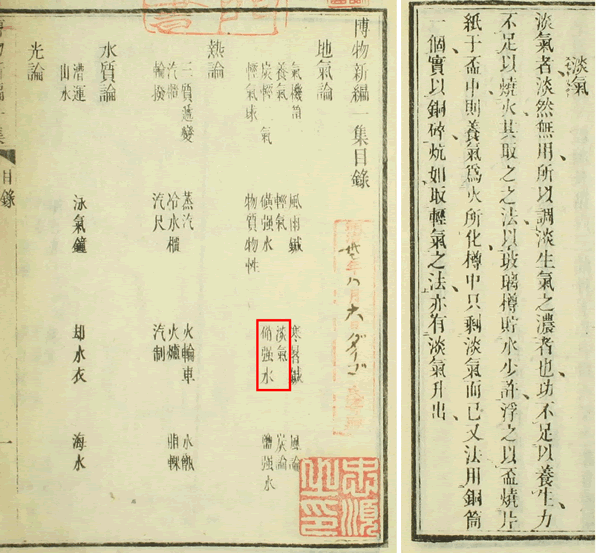 博物新編一集目錄
地氣論
氣機筩 風雨鍼 寒暑鍼 風論
養氣 輕氣 淡氣 炭論
炭輕氣 磺强水 硝强水 鹽强水
輕氣球 物質物性
熱論
三質遞變 蒸汽 火輪車 水甑
汽櫃 冷水櫃 火爐
輪撥 汽尺 汽制
水質論
泳氣鐘 却水衣 海水
山水
光論
目錄
一
淡氣
淡氣者淡然無用所以調淡生氣之濃者也功不足以養生力
不足以燒火其取之之法以玻璃樽貯水少許浮之以盃燒片
紙于盃中則養氣爲火所化樽中只剩淡氣而已又法用銅筒
一個實以銅碎炕如取輕氣之法亦有淡氣升出